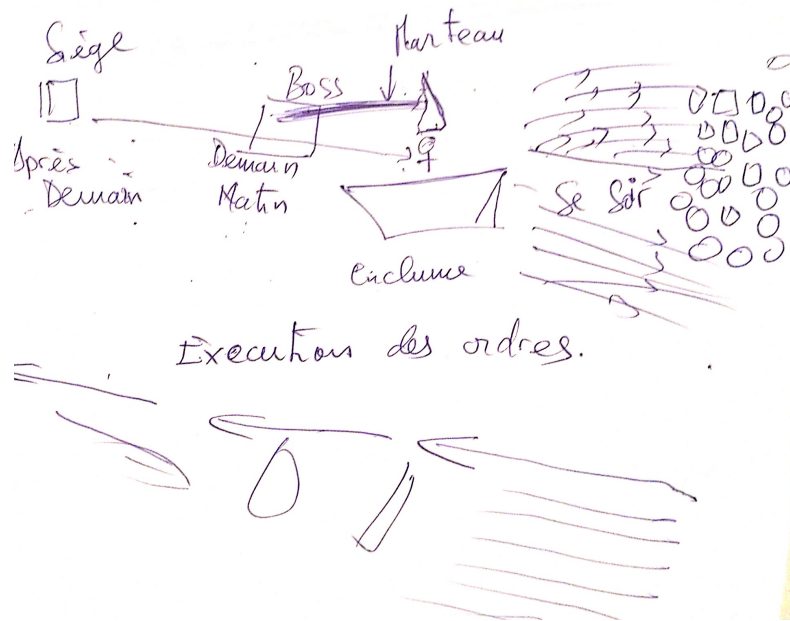 Siège
Marteau
Boss
Après
Demain
Demain
Matin
Se Soir
Enclume
Execution des ordres.